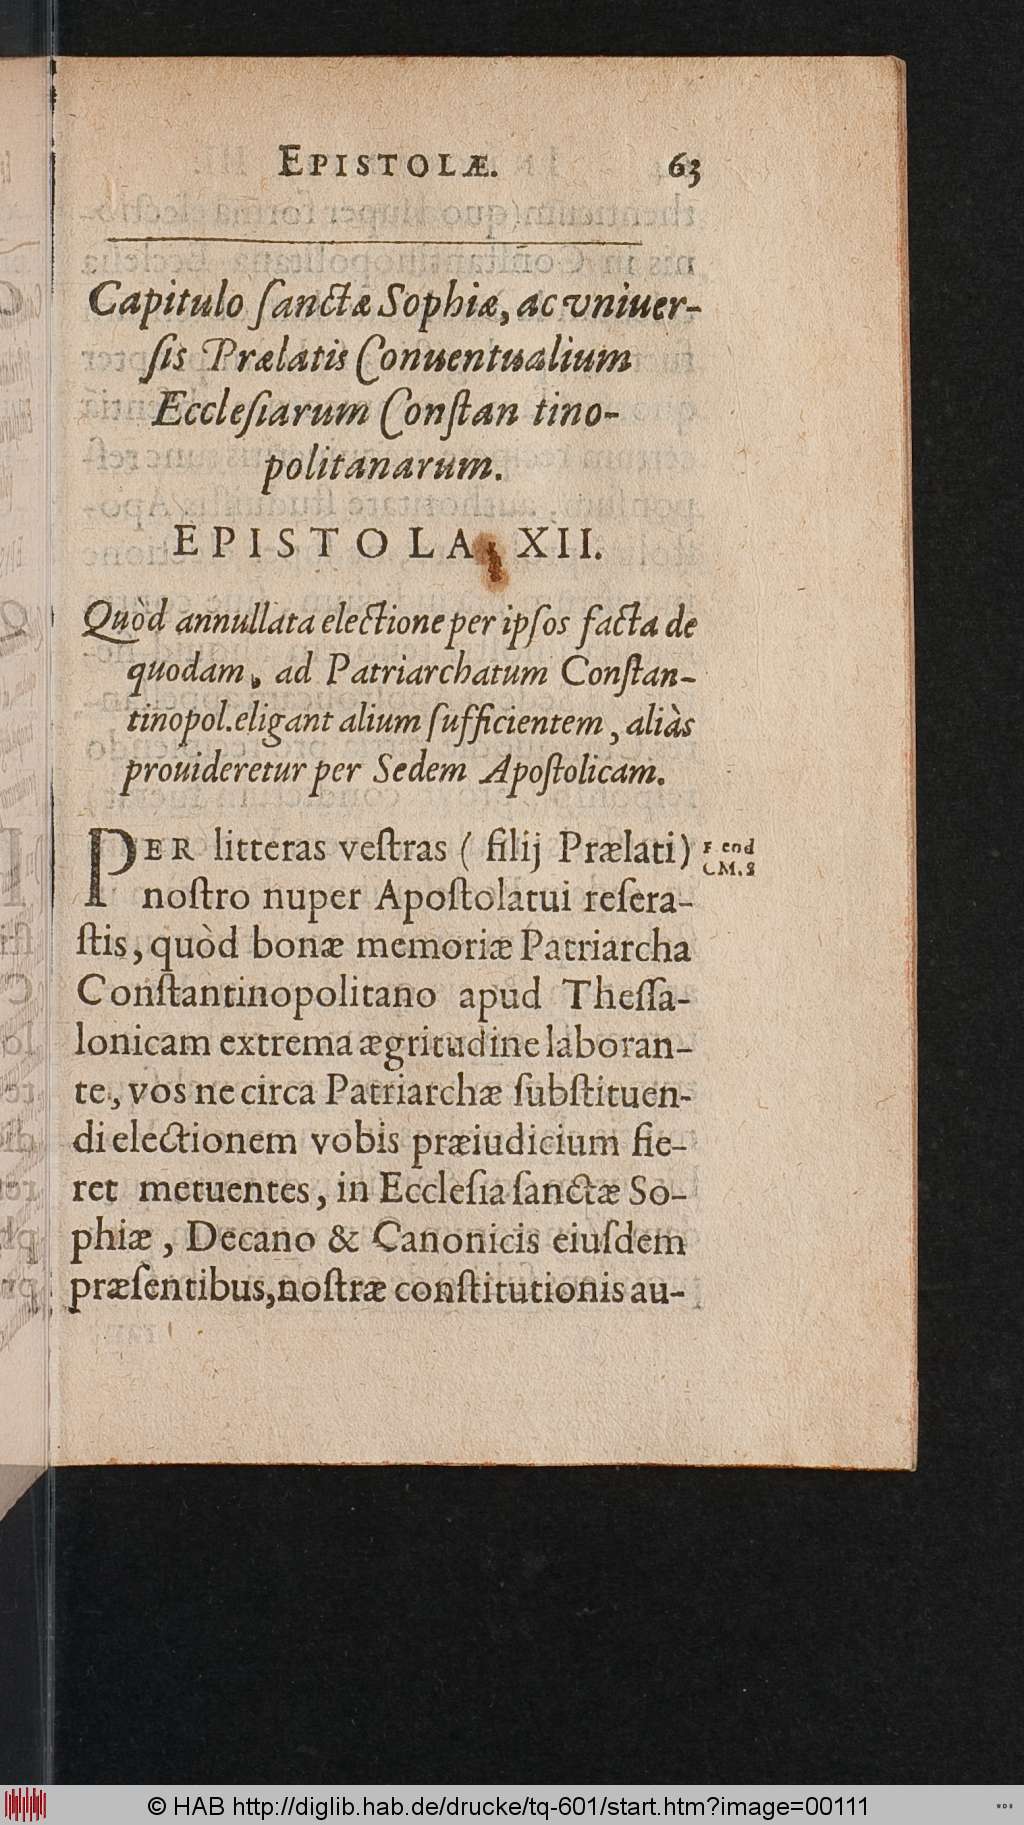 EPISTOLÆ. 63
Capitulo ſanctæ Sophiæ, ac vniuer-
ſis Prælatis Conuentualium
Eccleſiarum Conſtan tino-
politanarum.
EPISTOLA XII.
Quòd annullata electione per ipſos facta de
quodam, ad Patriarchatum Conſtan-
tinopol. eligant alium ſufficientem, aliàs
prouideretur per Sedem Apoſtolicam.
PER litteras veſtras ( filij Prælati)
noſtro nuper Apoſtolatui reſera-
ſtis, quòd bonæ memoriæ Patriarcha
Conſtantinopolitano apud Theſſa-
lonicam extrema ægritudine laboran-
te, vos ne circa Patriarchæ ſubſtituen-
di electionem vobis præiudicium fie-
ret metuentes, in Eccleſia ſanctæ So-
phiæ, Decano & Canonicis eiuſdem
præſentibus, noſtræ conſtitutionis au-
© HAB http://diglib.hab.de/drucke/tq-601/start.htm?image=00111